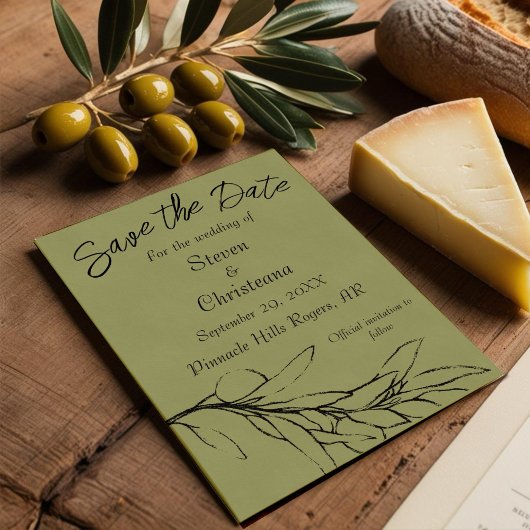 Save the Date
For the wedding of
Steven
&
Christeana
September 29, 20XX
Pinnacle Hills Rogers, AR
Official invitation to
follow